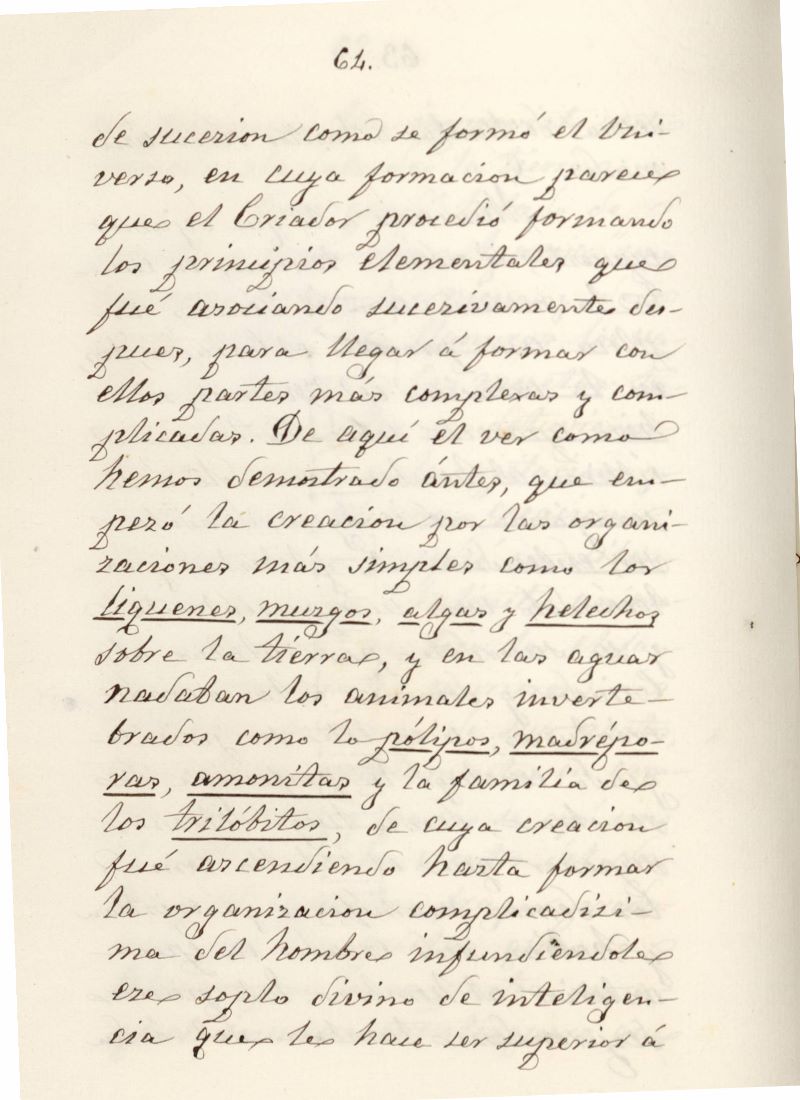 64.
de sucezion como se formó el Uni-
verso, en cuya formacion parece
que el Criador procedió formando
los principios elementales que
fué azociando sucezivamente des-
pues, para llegar á formar con
ellos partes más complexas y com-
plicadas. De aquí el ver como
hemos demostrado ántes, que em-
pezó la creacion por las organi-
zaciones más simples como los
liquenes, muzgos, algas y helechos
sobre la tierra, y en las aguas
nadaban los animales inverte-
brados como lo pólipos, madrépo-
ras, amonitas y la familia de
los trilóbitos, de cuya creacion
fué azcendiendo hazta formar
la organizacion complicadizi-
ma del hombre infundiendole
eze soplo divino de inteligen-
cia que le hace ser superior á